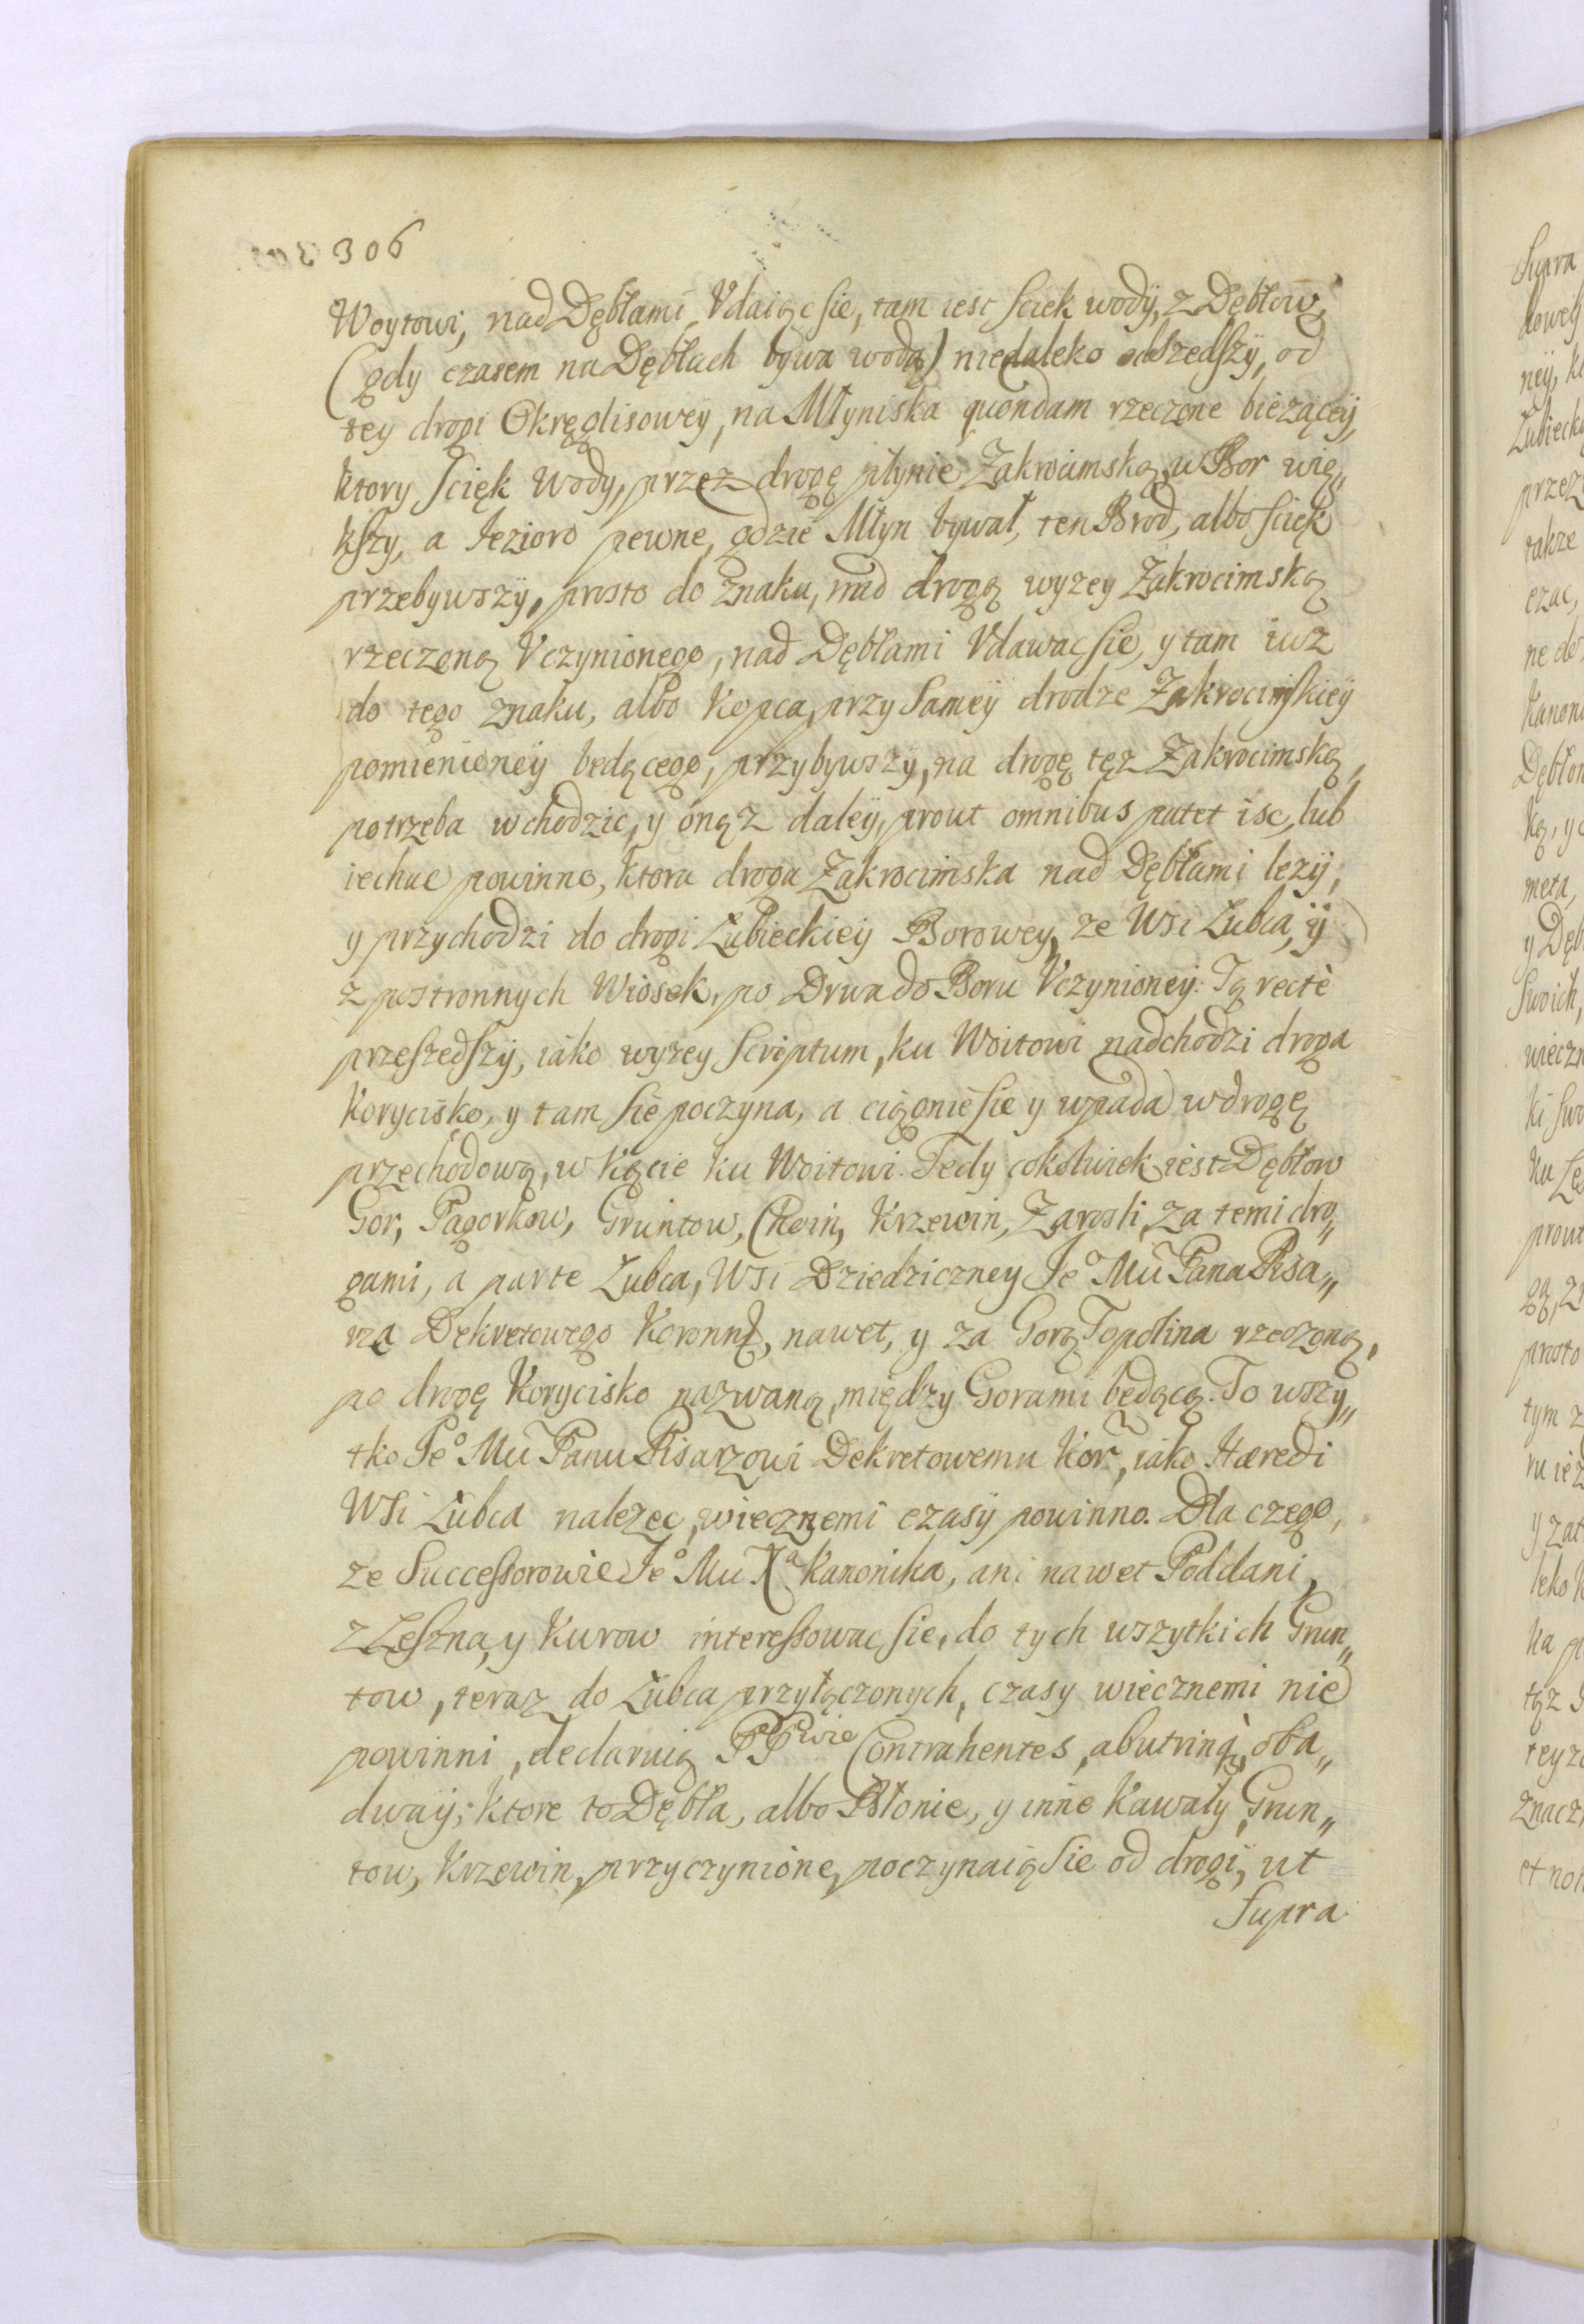 306
Woytowi, nad Dębłami Vdaiąc sie, tam iest sciek wodÿ, z Dębłow,
(gdy czasem na Dębłach bywa woda) niedaleko odszedszÿ, od
tey drogi Okręglisowey, na Młyniska quondam rzeczone bieząceÿ,
ktory sciek Wody, przez drogę płynie Zakrocimską, w Bor wię„
kszy, a Iezioro pewne, gdzie Młyn bywał, ten Brod, albo sciek
przebywszÿ, prosto do znaku, nad drogą wyzey Zakrocimską
rzeczoną Vczynionego, nad Dębłami Vdawac sie, y tam iuz
do tego znaku, albo Kopca, przy sameÿ drodze Zakrocimskieÿ
pomienioneÿ będącego, przybywszÿ, na drogę tęz Zakrocimską,
potrzeba wchodzic, y oną z daleÿ, prout omnibus patet isc, lub
iechac powinno, ktora droga Zakrocimska nad Dębłami lezÿ,
y przychodzi do drogi Lubieckieÿ Borowey, ze Wsi Lubca, ÿ
z postronnych Wiosek, po Drwa do Boru Vczynioneÿ. Tą rectè
przeszedszÿ, iako wyzey scriptum, ku Woitowi nadchodzi droga
Korycisko, y tam sie poczyna, a ciągnie sie y wpada w drogę
przechodową, w Kącie ku Woitowi. Tedy cokolwiek iest Dębłow
Gor, Pagorkow, Gruntow, Choin, Krzewin, Zarosli, za temi dro„
gami, a parte Lubca, Wsi Dziedziczney Je° Mu Pana Pisa„
rza Dekretowego Koronnę, nawet, y za Gorą Topolina rzeczoną,
po drogę Korycisko nazwaną, między Gorami będącą. To wszy„
tko Je° Mu Panu Pisarzowi Dekretowemu Kor, iako Hæredi
Wsi Lubca nalezec, wiecznemi czasÿ powinno. Dla czego,
ze Successorowie Je° Mu Xª Kanonika, ani nawet Poddani,
z Leszna, y Kurow interessowac sie, do tych wszytkich Grun„
tow, teraz do Lubca przyłączonych, czasy wiecznemi nie
powinni, declaruią PPwie Contrahentes, ab utrinq, oba„
dwaÿ; ktore to Dębła, albo Błonie, y inne Kawały, Grun„
tow, Krzewin, przyczynione, poczynaią sie od drogÿ, ut
supra